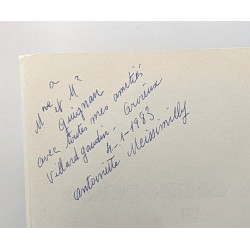 a
Mme et Mr
Quignan
avec toutes mes amitiés
Villardgaudin. Arvieux
4-1-1983
Antoinette Meissimilly